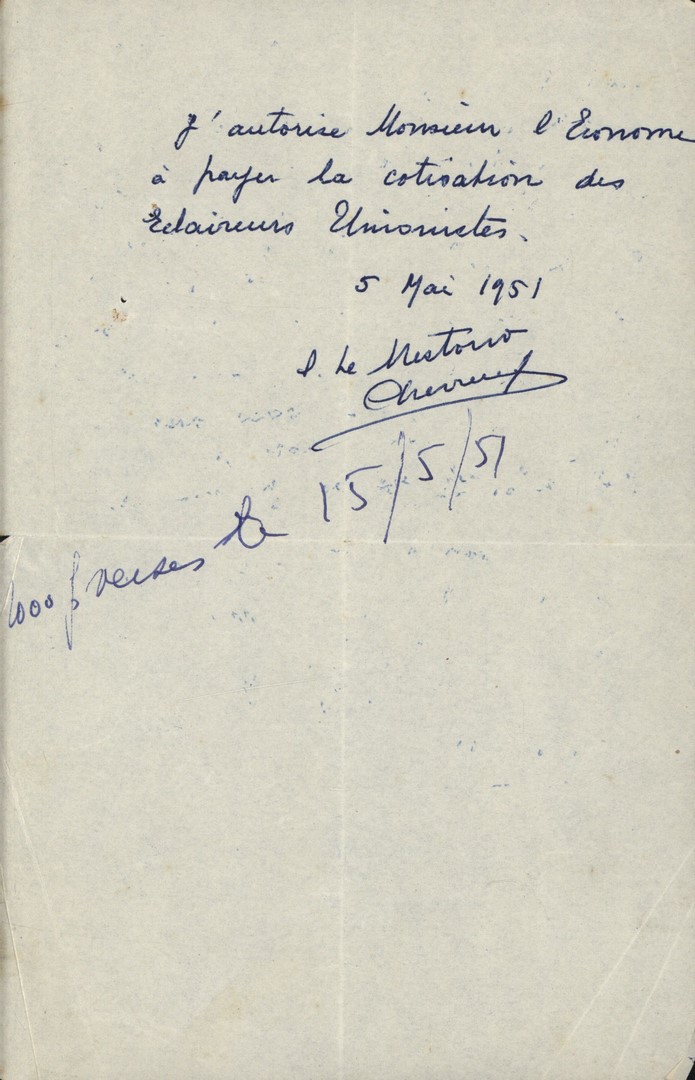 J' autorise Monsieur l'Econome
à payer la cotisation des
Eclaireurs Unionistes.
5 Mai 1951
P. Le
1000 f verses le 15/5/51